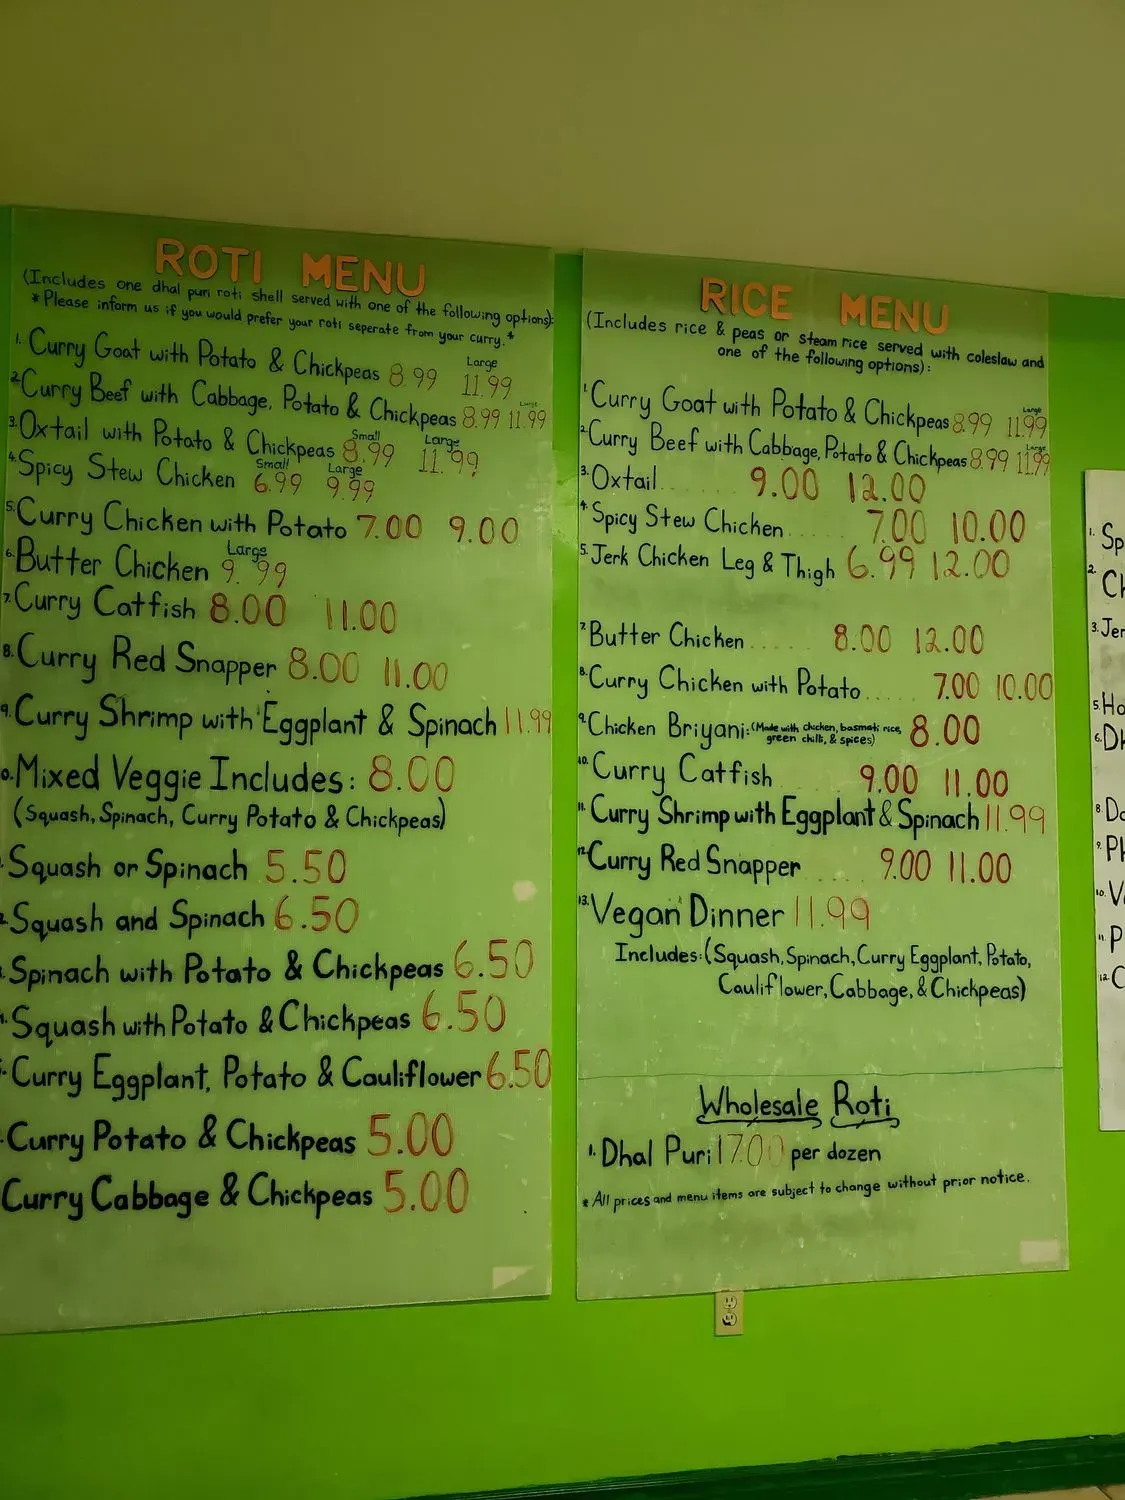 ROTI MENU
(Includes one dhal puri roti shell served with one of the following options):
*Please inform us if you would prefer your roti seperate from your curry.*
Large
1. Curry Goat with Potato & Chickpeas 8.99 11.99
Large
2. Curry Beef with Cabbage, Potato & Chickpeas 8.99 11.99
Small Large
3. Oxtail with Potato & Chickpeas 8.99 11.99
Small Large
4. Spicy Stew Chicken 6.99 9.99
5. Curry Chicken with Potato 7.00 9.00
Large
6. Butter Chicken 9.99
7. Curry Catfish 8.00 11.00
8. Curry Red Snapper 8.00 11.00
9. Curry Shrimp with Eggplant & Spinach 11.99
0. Mixed Veggie Includes: 8.00
(Squash, Spinach, Curry Potato & Chickpeas)
Squash or Spinach 5.50
Squash and Spinach 6.50
Spinach with Potato & Chickpeas 6.50
Squash with Potato & Chickpeas 6.50
Curry Eggplant, Potato & Cauliflower 6.50
Curry Potato & Chickpeas 5.00
Curry Cabbage & Chickpeas 5.00
RICE MENU
(Includes rice & peas or steam rice served with coleslaw and
one of the following options):
Large
1. Curry Goat with Potato & Chickpeas 8.99 11.99
Large
2. Curry Beef with Cabbage, Potato & Chickpeas 8.99 11.99
3. Oxtail...... 9.00 12.00
4. Spicy Stew Chicken..... 7.00 10.00
5. Jerk Chicken Leg & Thigh 6.99 12.00
7. Butter Chicken..... 8.00 12.00
8. Curry Chicken with Potato..... 7.00 10.00
9. Chicken Briyani: (Made with chicken, basmati rice, 8.00
green chili, & spices)
10. Curry Catfish..... 9.00 11.00
11. Curry Shrimp with Eggplant & Spinach 11.99
12. Curry Red Snapper .... 9.00 11.00
13. Vegan Dinner 11.99
Includes: (Squash, Spinach, Curry Eggplant, Potato,
Cauliflower, Cabbage, & Chickpeas)
Wholesale Roti
1. Dhal Puri 17.00 per dozen
* All prices and menu items are subject to change without prior notice.
1. Sp
2. Ch
3. Jer
5. Ho
6. Dh
8. Do
9. Ph
10. V
11. P
12. C